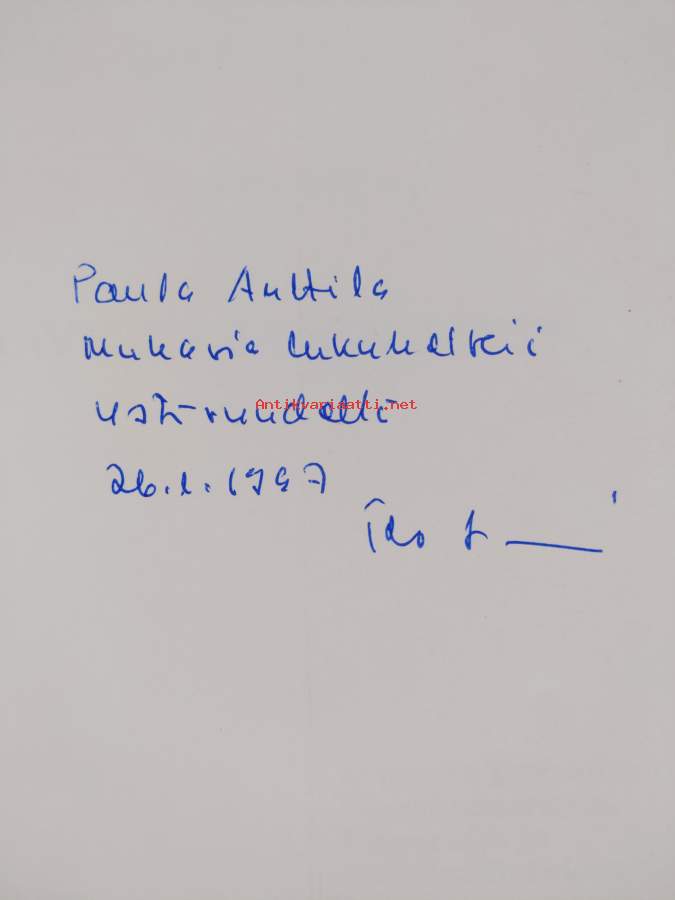 Paula Anttila
mukavia lukuhetkiä
ystävyydellä
Antikvariaatti.net
26.1.1997